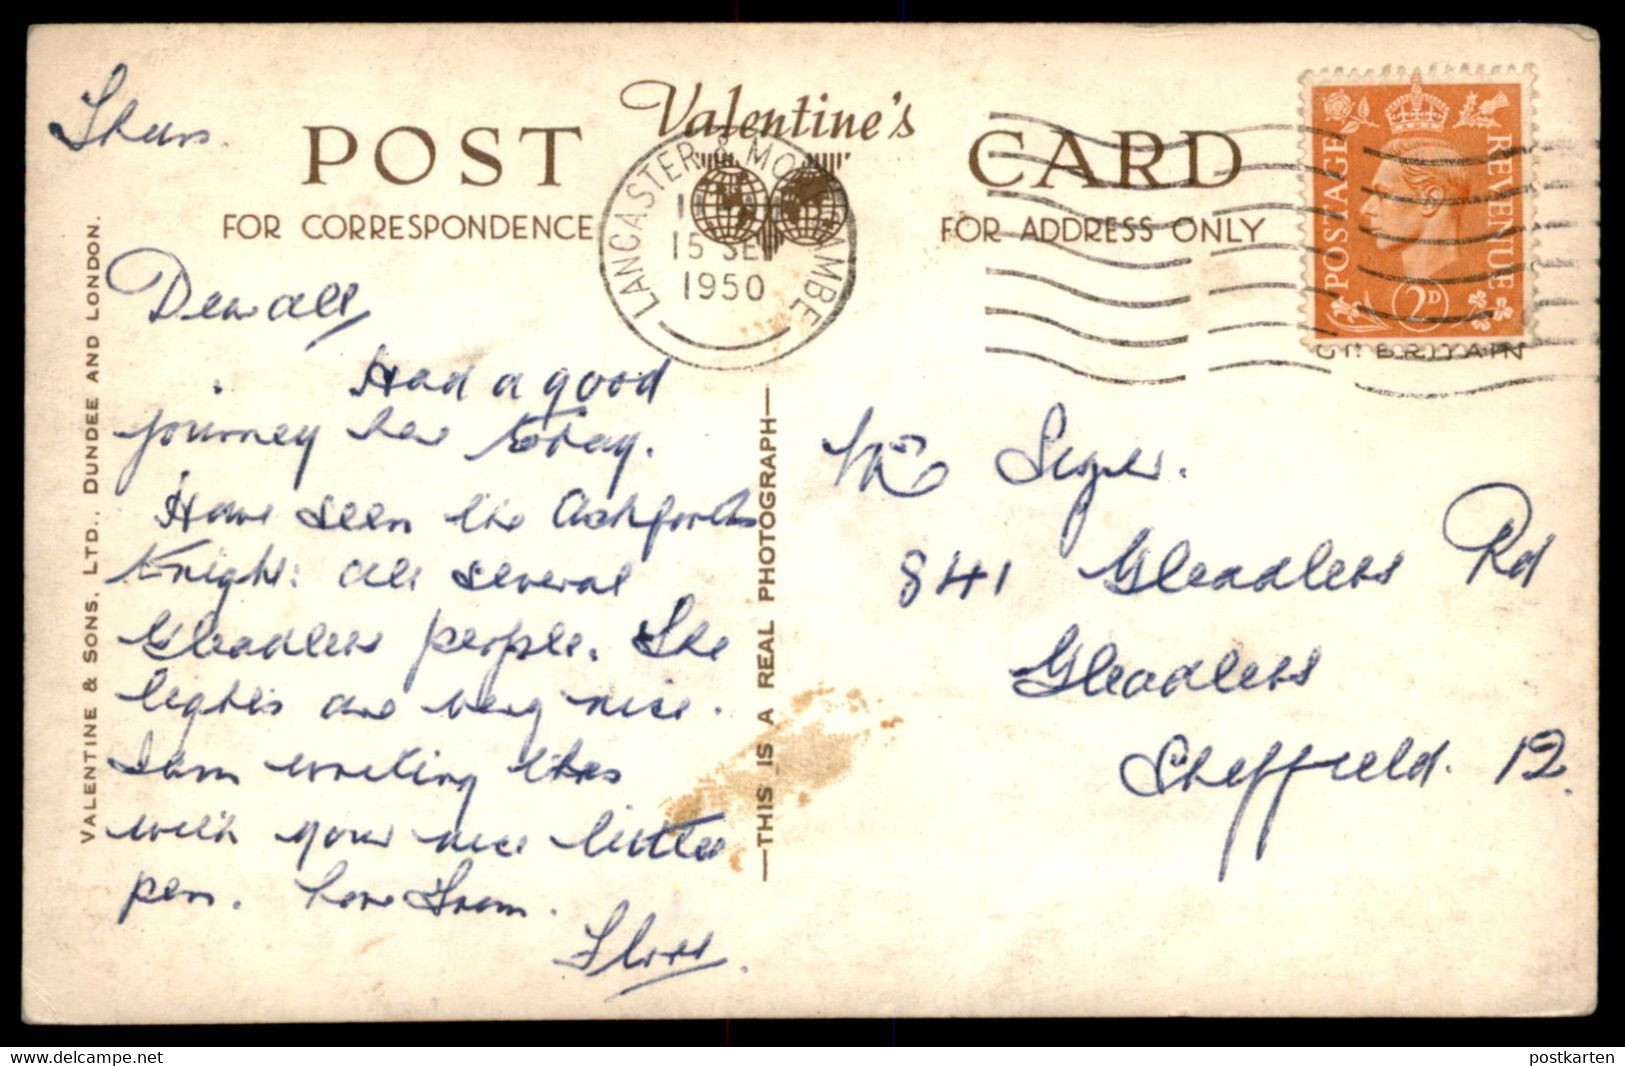 Thurs.
POST
Valentine's
CARD
FOR CORRESPONDENCE
FOR ADDRESS ONLY
LANCASTER & MO AMBE
15 SE
1950
POSTAGE
REVENUE
2D
GT. BRITAIN
VALENTINE & SONS, LTD., DUNDEE AND LONDON.
THIS IS A REAL PHOTOGRAPH
Dear all,
Had a good
journey here today.
Have seen the Ashforths
tonight: also several
Gleadless people. The
lights are very nice.
I am writing this
with your nice little
pen. Love from.
Floss.
Seger.
841 Gleadless Rd
Gleadless
Sheffield. 12.
www.delcampe.net
postkarten